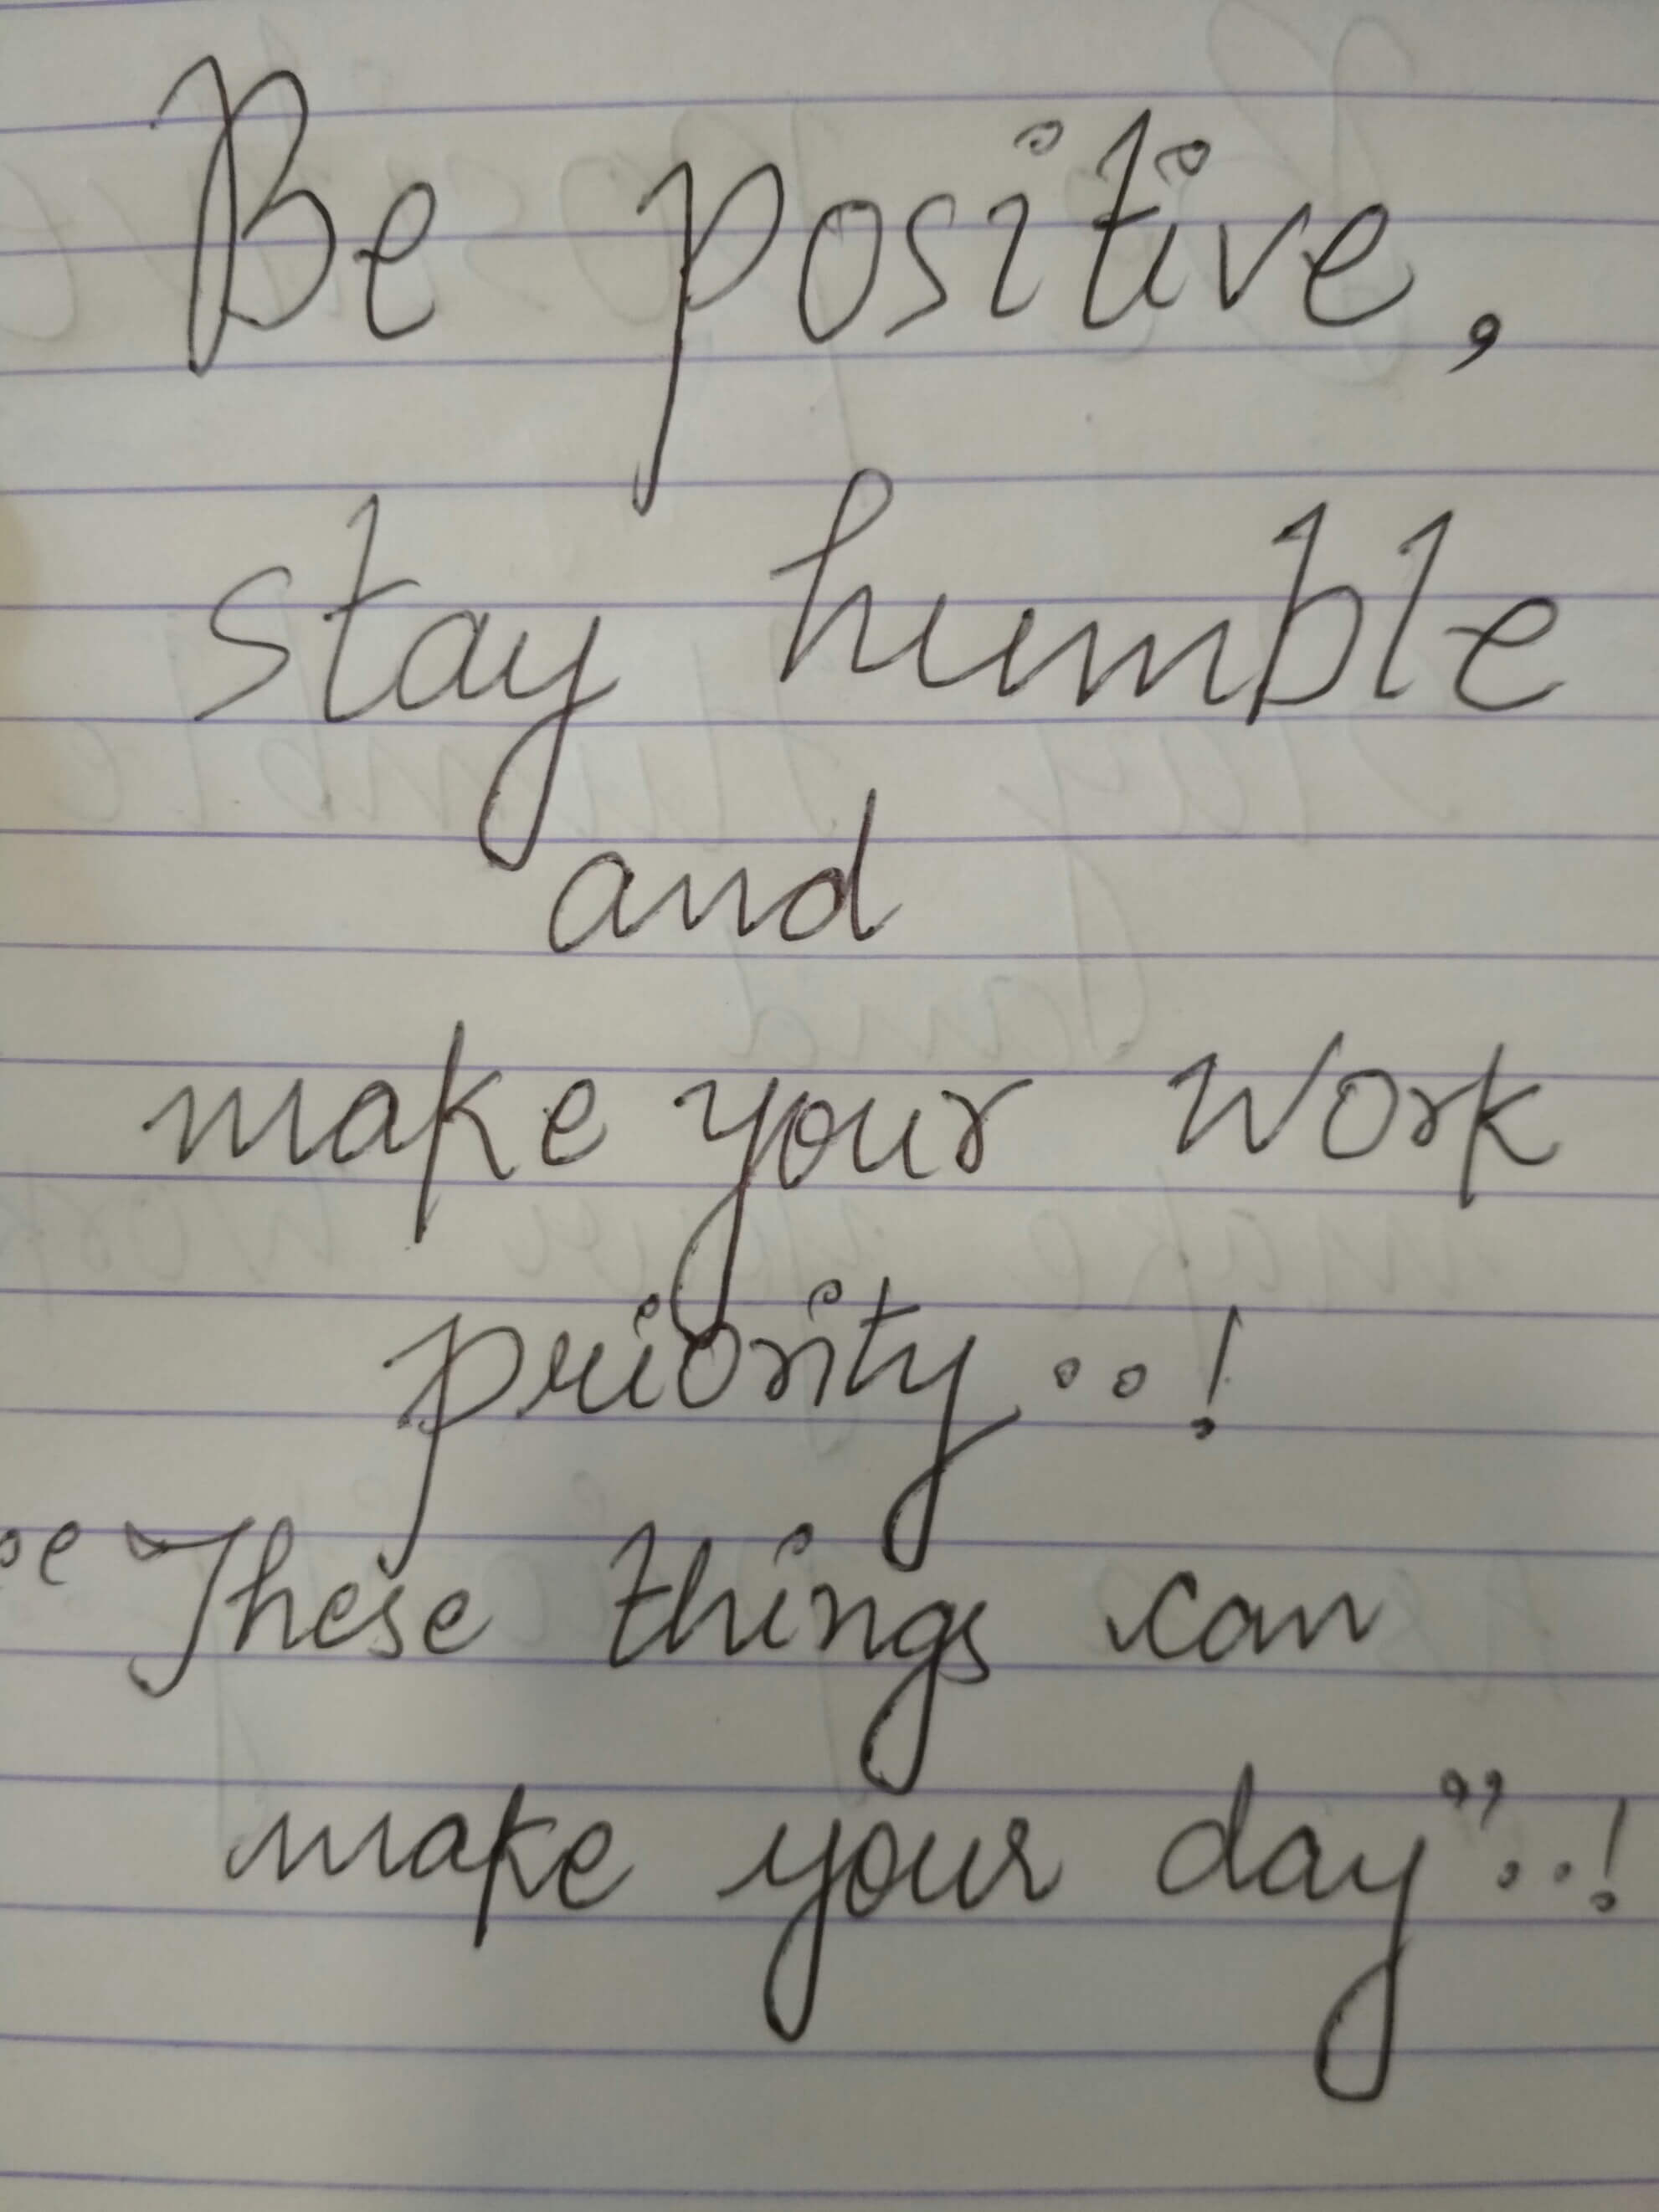 Be positive,
stay humble
and
make your work
priority..!
"These things can
make your day"..!